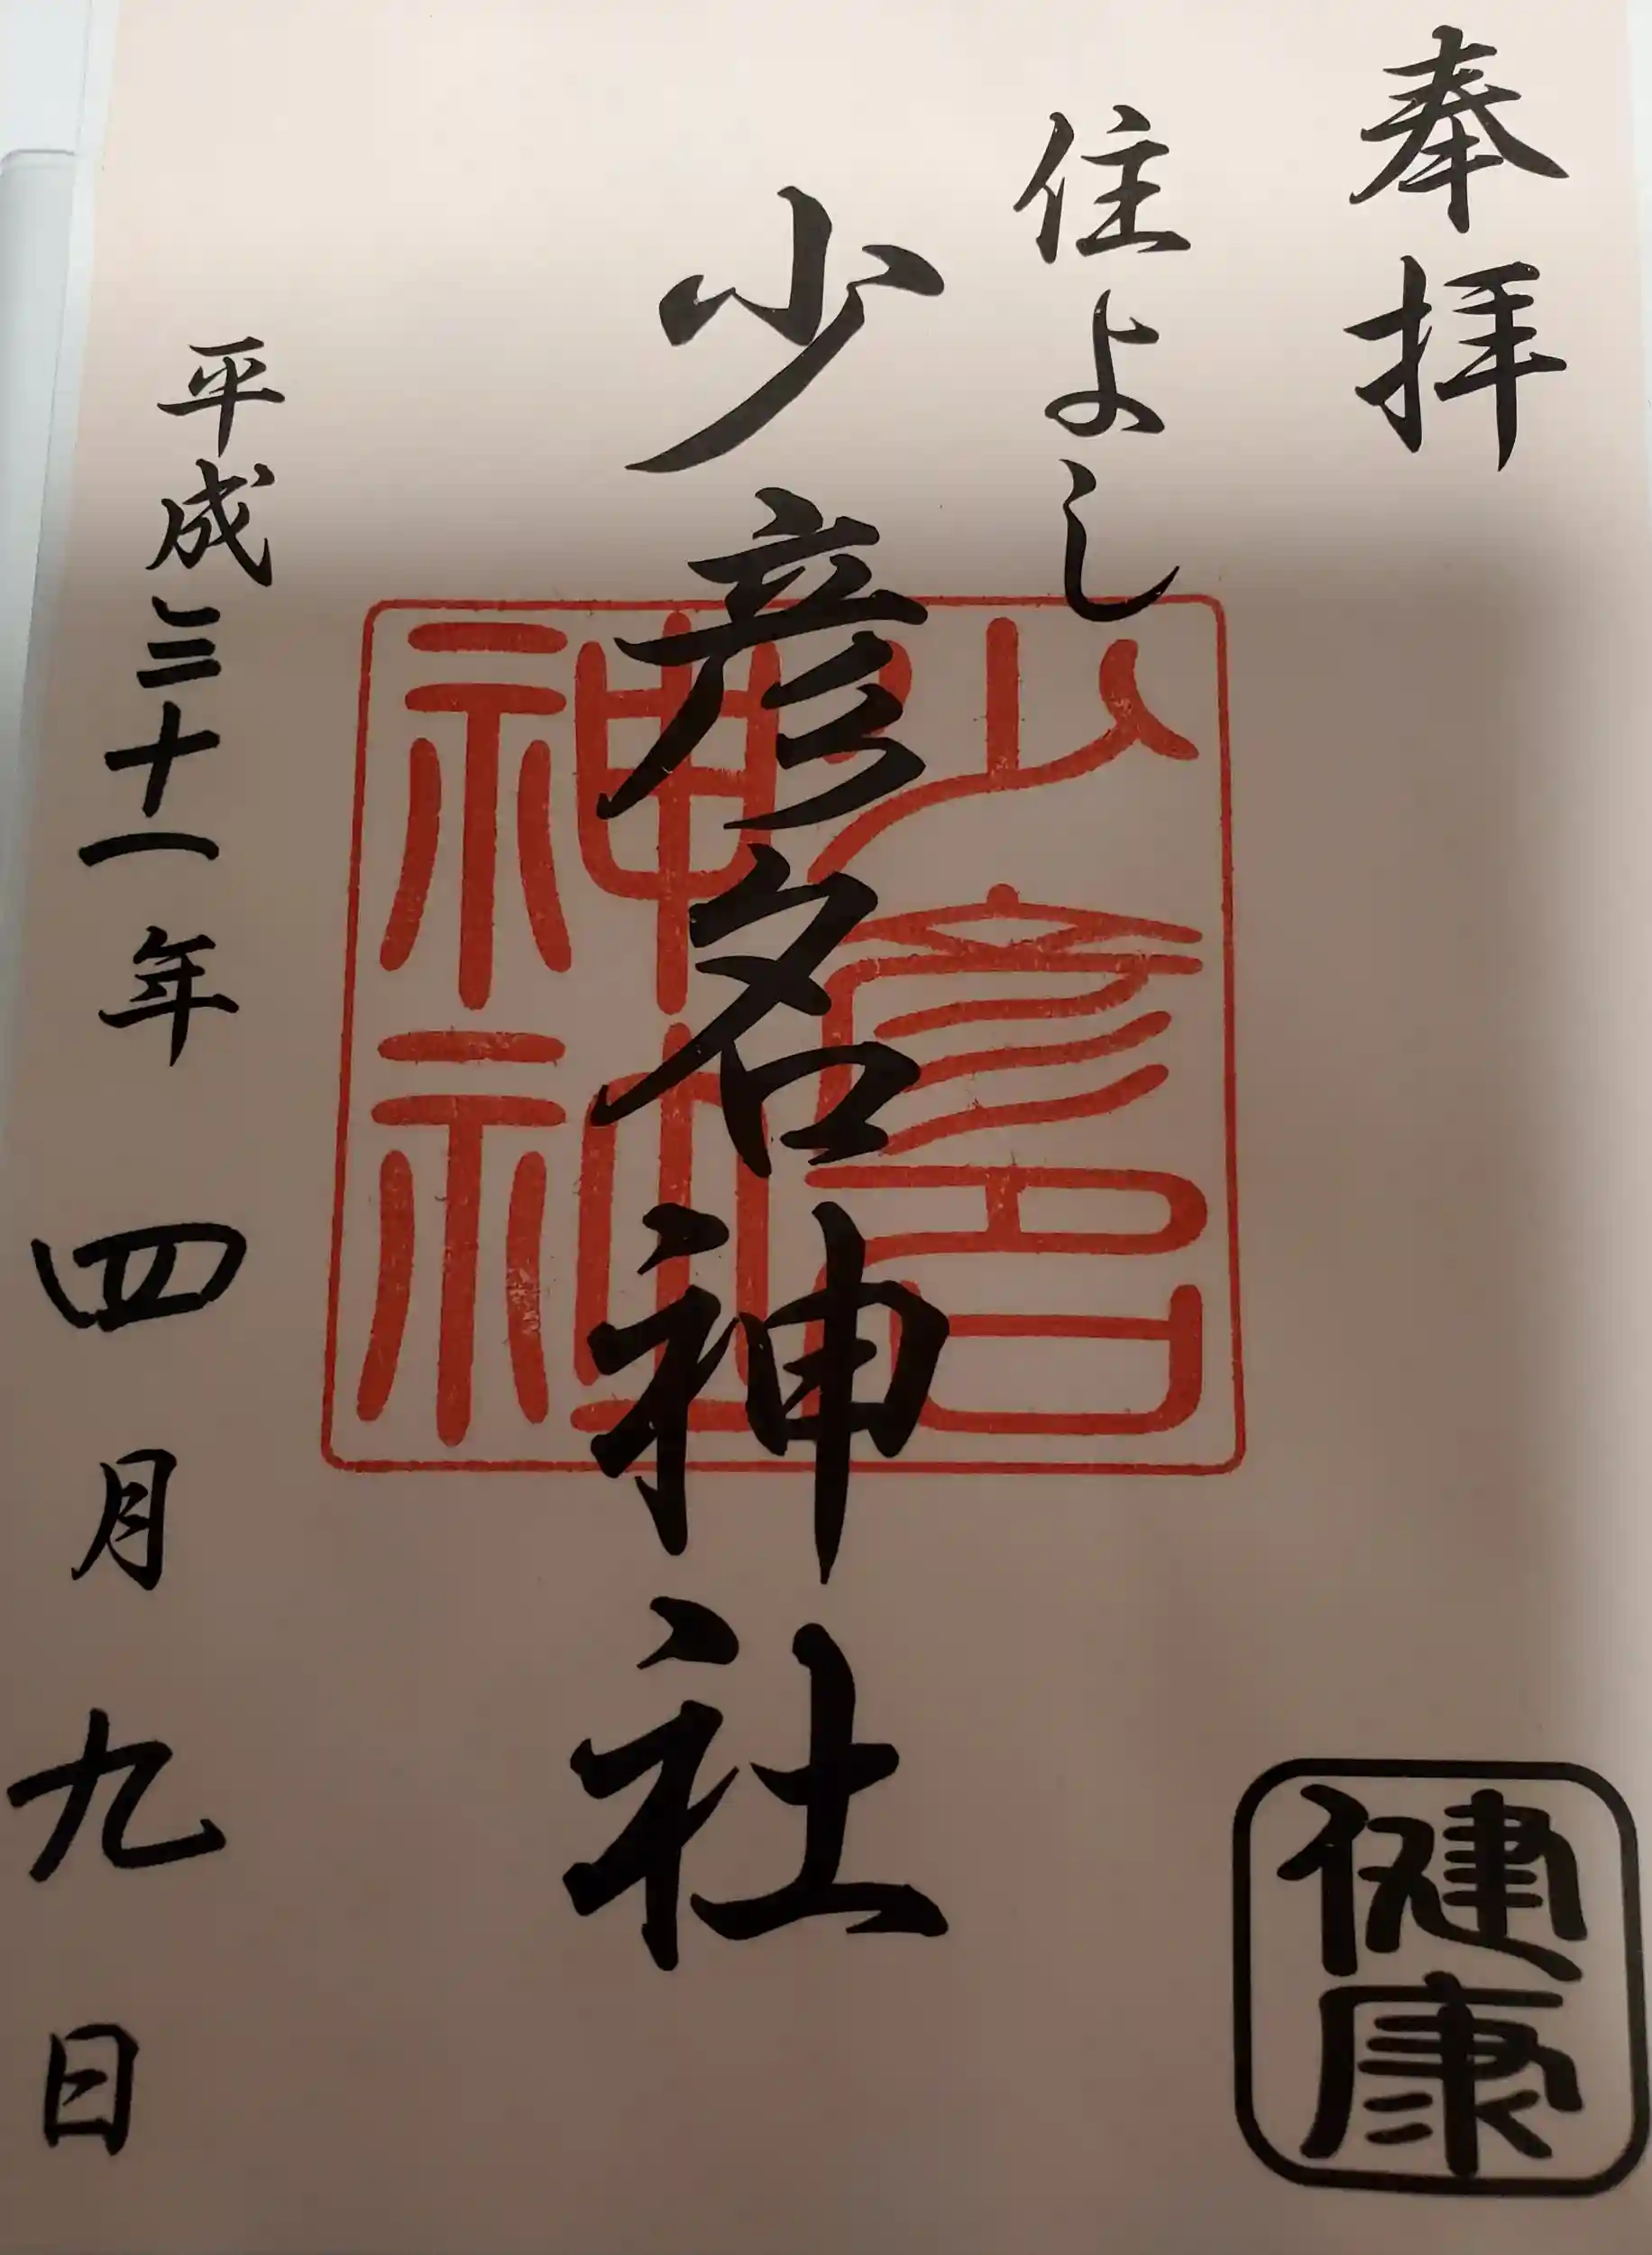 奉拝
健康
住よし
少彦名神社
少彦名
神社
平成三十一年四月九日